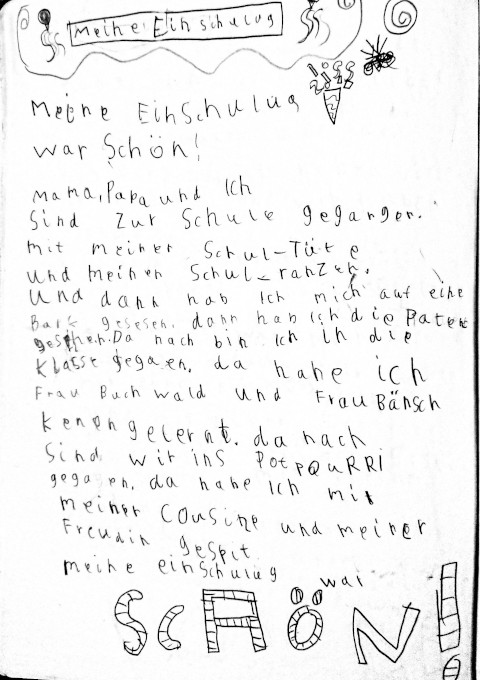 Meine Einschulug
Meine Einschulug
war Schön!
Mama, Papa und Ich
Sind zur Schule gegangen.
mit meiner Schul-Tüte
und meinen Schul-ranzen.
Und dann hab Ich mich auf eine
Bank gesesen. dann hab Ich die Paten
gesehen. Da nach bin Ich in die
Klasse gegaen. da habe ich
Frau Buchwald und Frau Bänsch
kenen gelernt. da nach
Sind wir ins Potpourri
gegagen. da habe Ich mit
meiner Cousine und meiner
Freudin gespit.
meine einschulug war
SCHÖN!